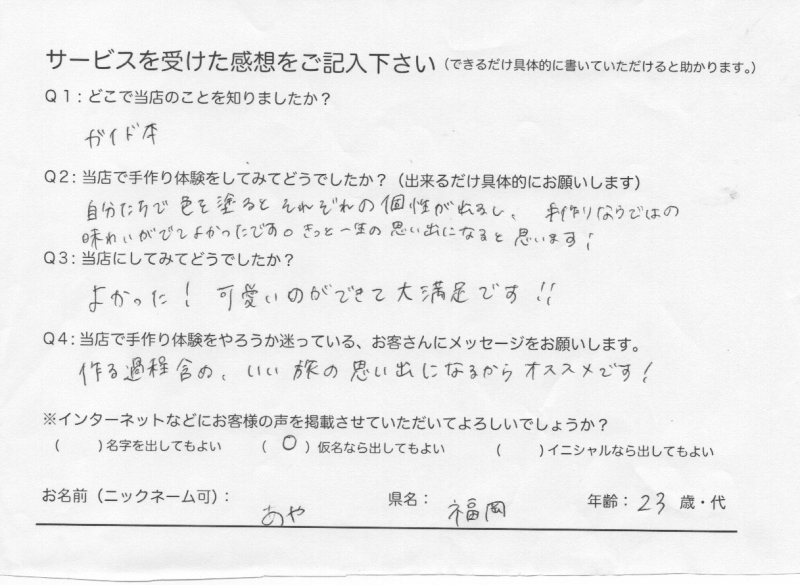 サービスを受けた感想をご記入下さい（できるだけ具体的に書いていただけると助かります。）
Q1：どこで当店のことを知りましたか？
ガイド本
Q2：当店で手作り体験をしてみてどうでしたか？（出来るだけ具体的にお願いします）
自分たちで色を塗るとそれぞれの個性が出るし、手作りならではの
味わいがでてよかったです。きっと一生の思い出になると思います！
Q3：当店にしてみてどうでしたか？
よかった！可愛いのができて大満足です!!
Q4：当店で手作り体験をやろうか迷っている、お客さんにメッセージをお願いします。
作る過程含め、いい旅の思い出になるからオススメです！
※インターネットなどにお客様の声を掲載させていただいてよろしいでしょうか？
（　　）名字を出してもよい　（ ○ ）仮名なら出してもよい　（　　）イニシャルなら出してもよい
お名前（ニックネーム可）：あや　県名：福岡　年齢：23 歳・代